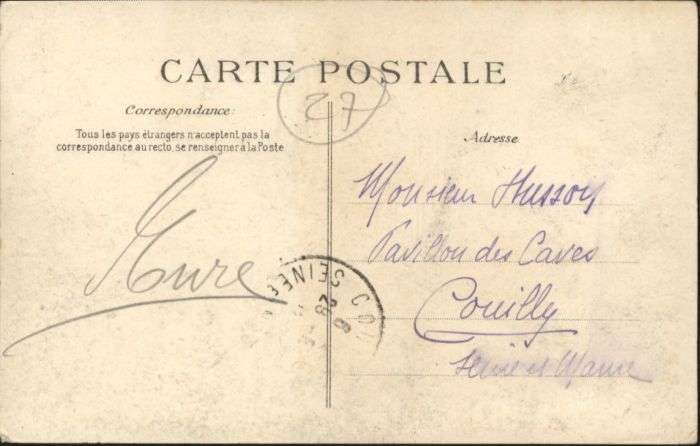 CARTE POSTALE
27
Correspondance:
Tous les pays étrangers n'acceptent pas la
correspondance au recto, se renseigner à la Poste
Adresse
Monsieur Husson
Pavillon des Caves
Couilly
Seine et Marne
SEINE
28
8